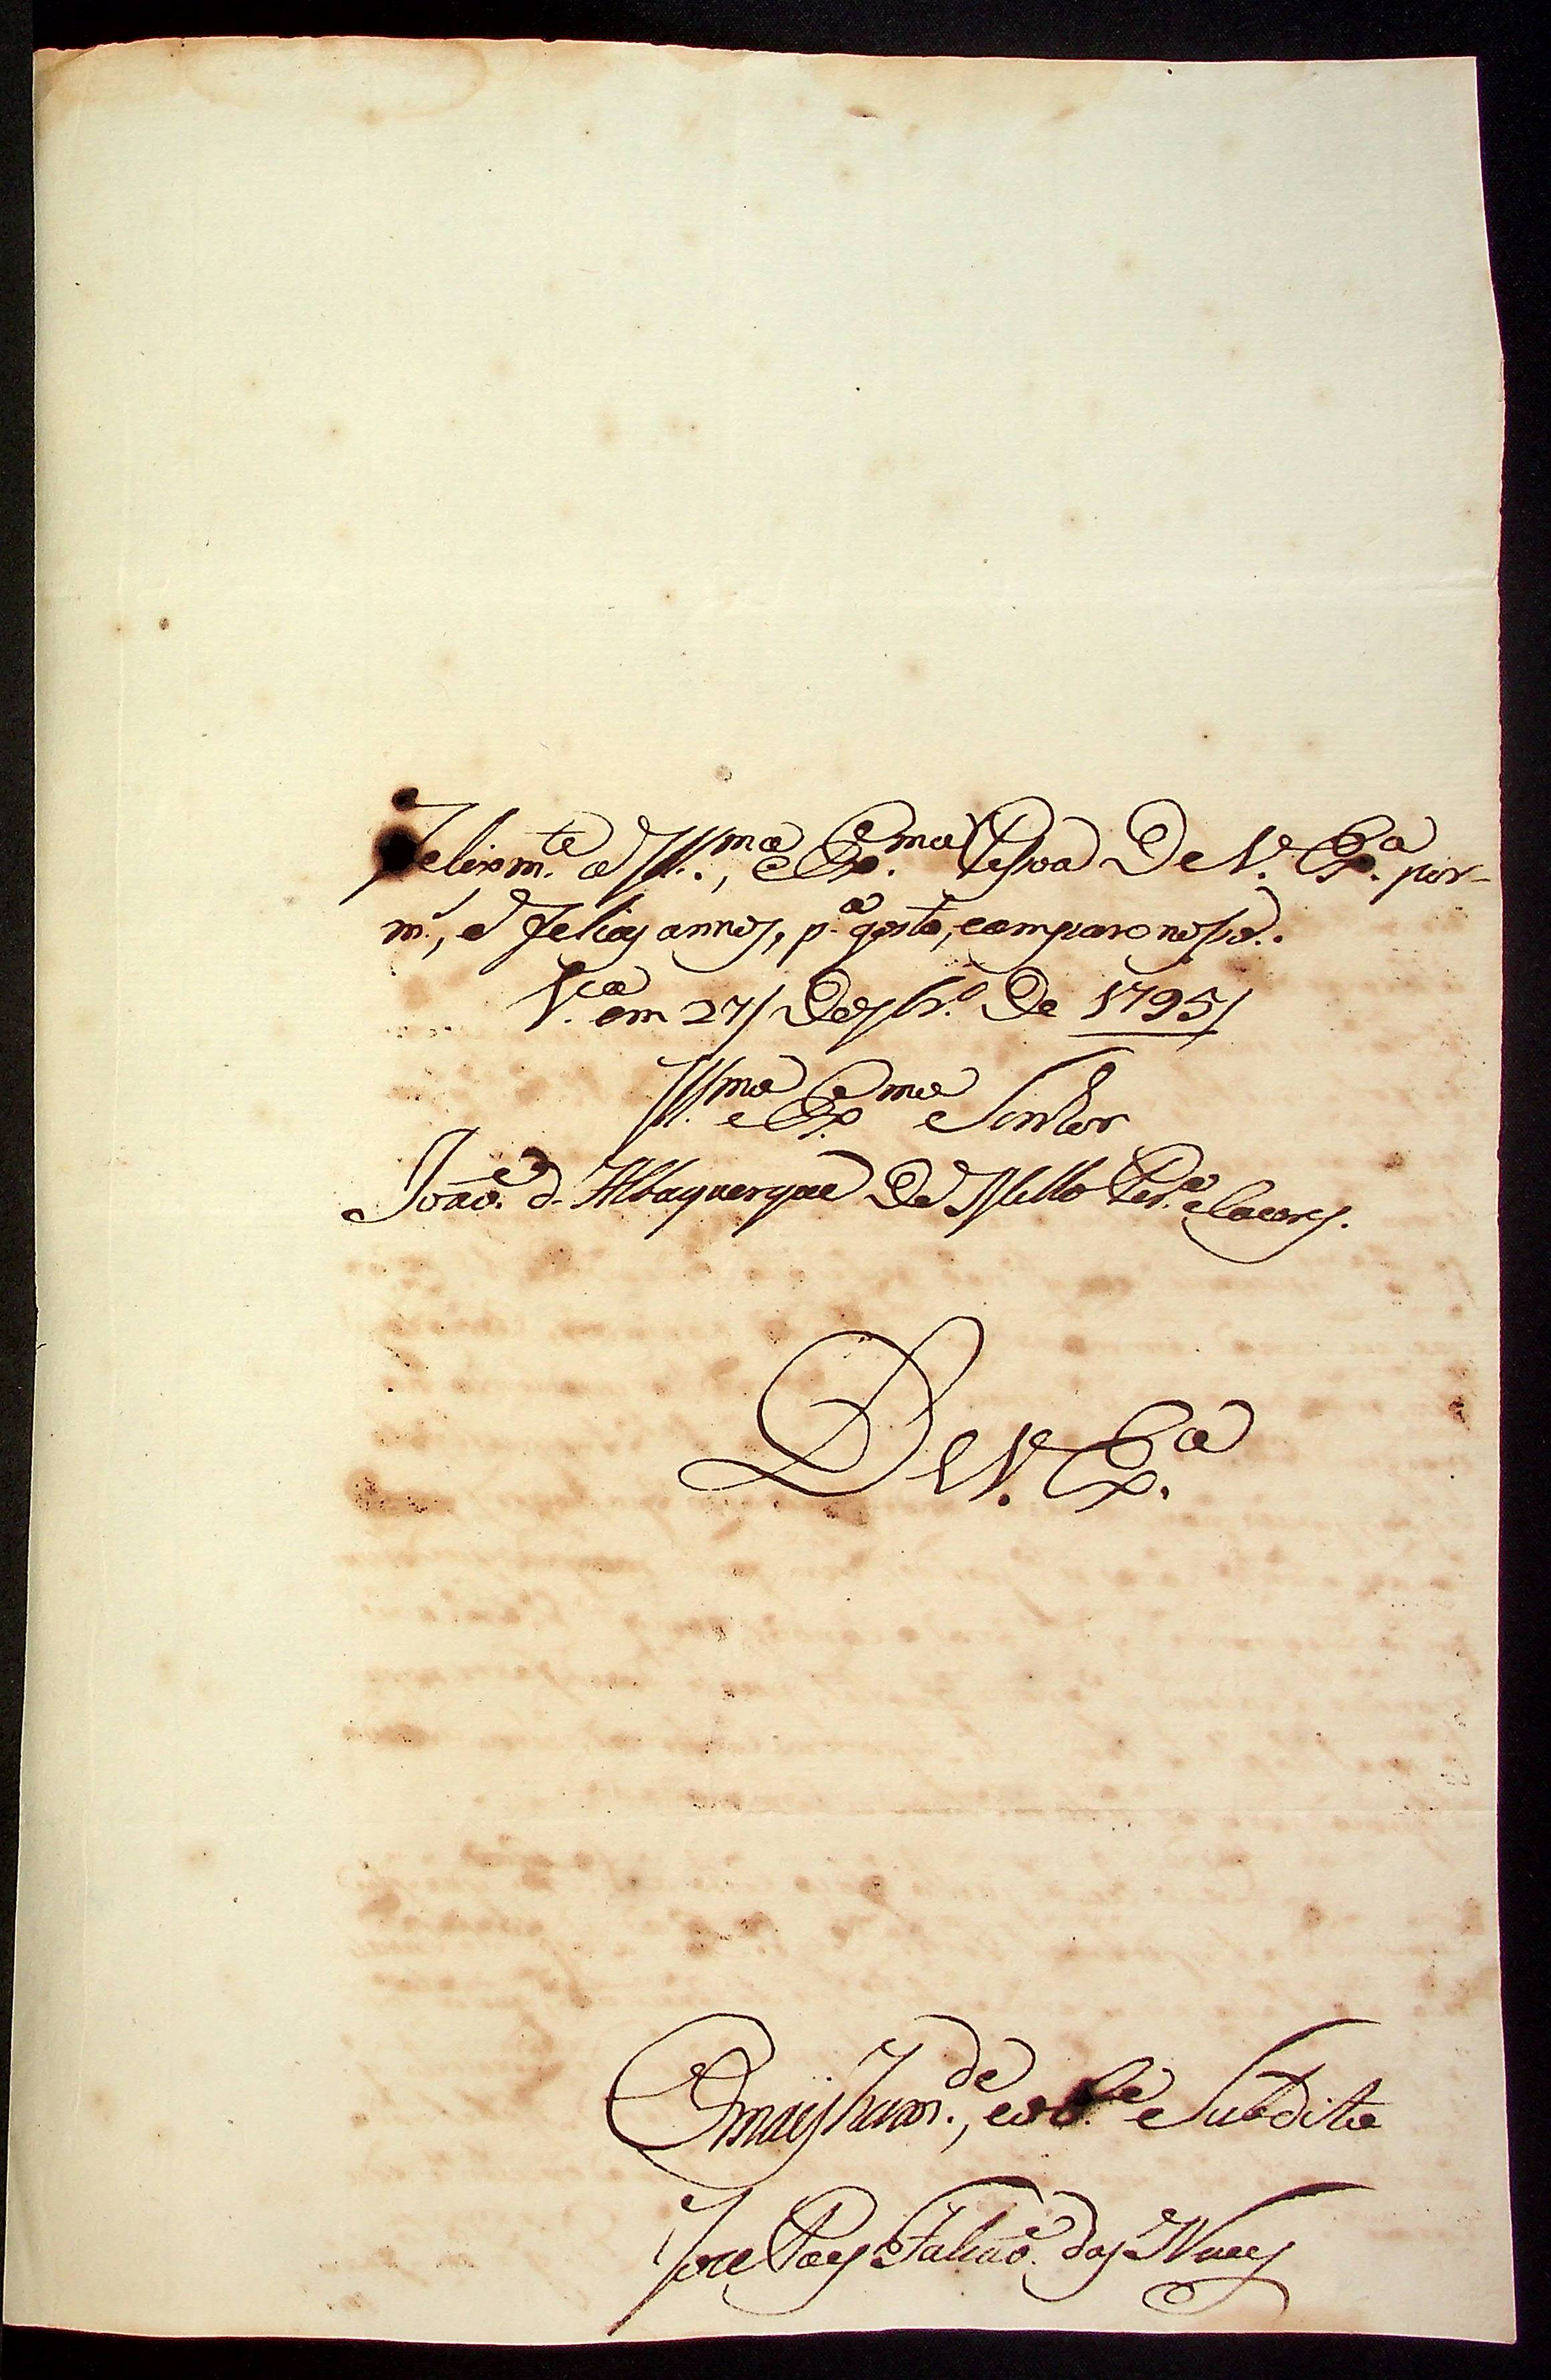 Felism.te a Ill.ma, e Ex.ma Pessoa De V. Ex.a por
m.s, e felices annos, p.a gosto, e amparo nosso.
V.a em 27/ Dezbr.o De 1795/
Ill.mo e Ex.mo Senhor
João d'Albuquerque De Mello Per.a e Caceres.
De V. Ex.a
O mais hum.de, e ob.e Subdito
Joze Paes Falcão das Neves